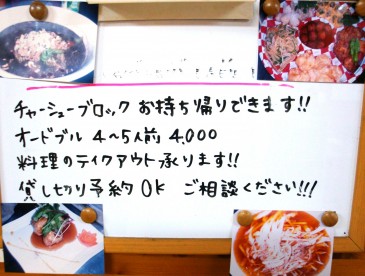 チャーシューブロック お持ち帰りできます!!
オードブル 4～5人前 4,000
料理のテイクアウト承ります!!
貸し切り予約OK ご相談ください!!!